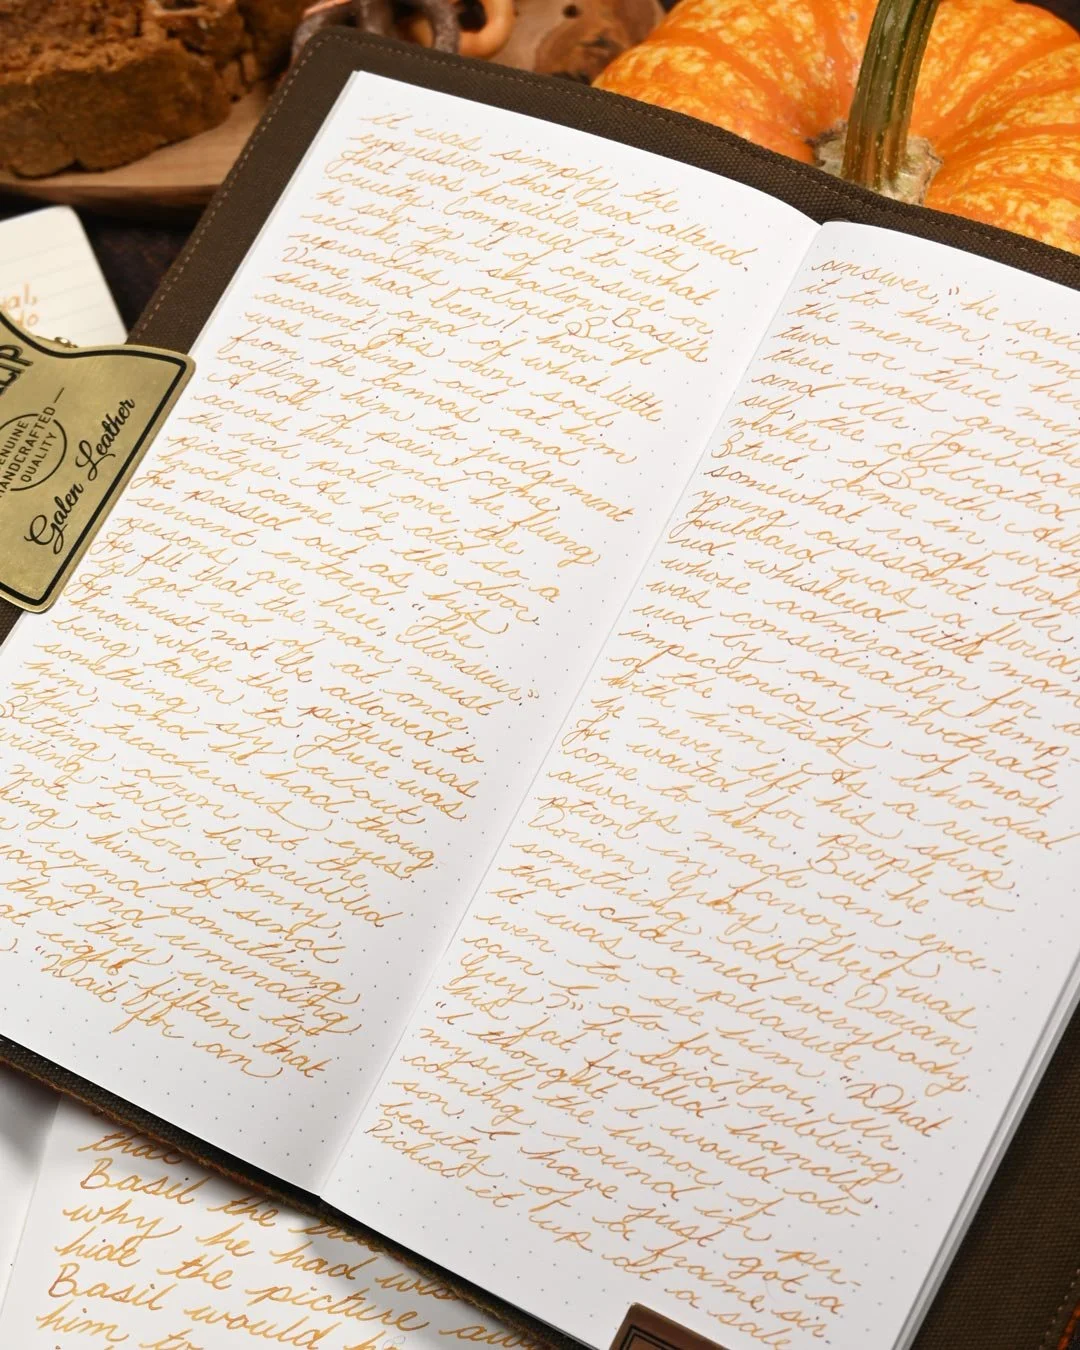 It was simply the
expression that had altered.
That was horrible in its
cruelty. Compared to what
he saw in it of censure or
rebuke, how shallow Basil's
reproaches about Sibyl
Vane had been! - how
shallow, and of what little
account! His own soul
was looking out at him
from the canvas and
calling him to judgement.
A look of pain came
across him, and he flung
the rich pall over the
picture. As he did so, a
knock came to the door.
He passed out as his
servant entered. "The
persons are here, Monsieur."
He felt that the man must
be got rid of at once.
He must not be allowed to
know where the picture was
being taken to. There was
something sly about
him, and he had thought-
ful, treacherous eyes.
Sitting down at the
writing-table he scribbled
note to Lord Henry,
him to send
round something
and reminding
that they were to
eight-fifteen that
"Wait for an
answer," he said
it to him, "and
the men in here
two or three min
there was another
and Mr. Hubbard
self, the celebrated
maker of South Aud
Street, came in with
somewhat rough-look
young assistant. Mr.
Hubbard was a florid,
red-whiskered little man
whose admiration for
was considerably temp
ered by an inveterate
impecuniosity of most
of the artists who deal
with him. As a rule,
he never left his shop.
He waited for people to
come to him. But he
always made an exce-
ption in favor of
Dorian Gray. There was
something about Dorian
that charmed everybody.
It was a pleasure
even to see him. "What
can I do for you, Mr.
Grey?" he said, rubbing
his fat freckled hands.
"I thought I would do
myself the honor of
coming round in per-
son. I have just got a
beauty of a frame, sir.
Picked it up at a sale
GENUINE
HANDCRAFTED
QUALITY
Galen Leather
Basil the
why he had
hide the picture
Basil would
him to